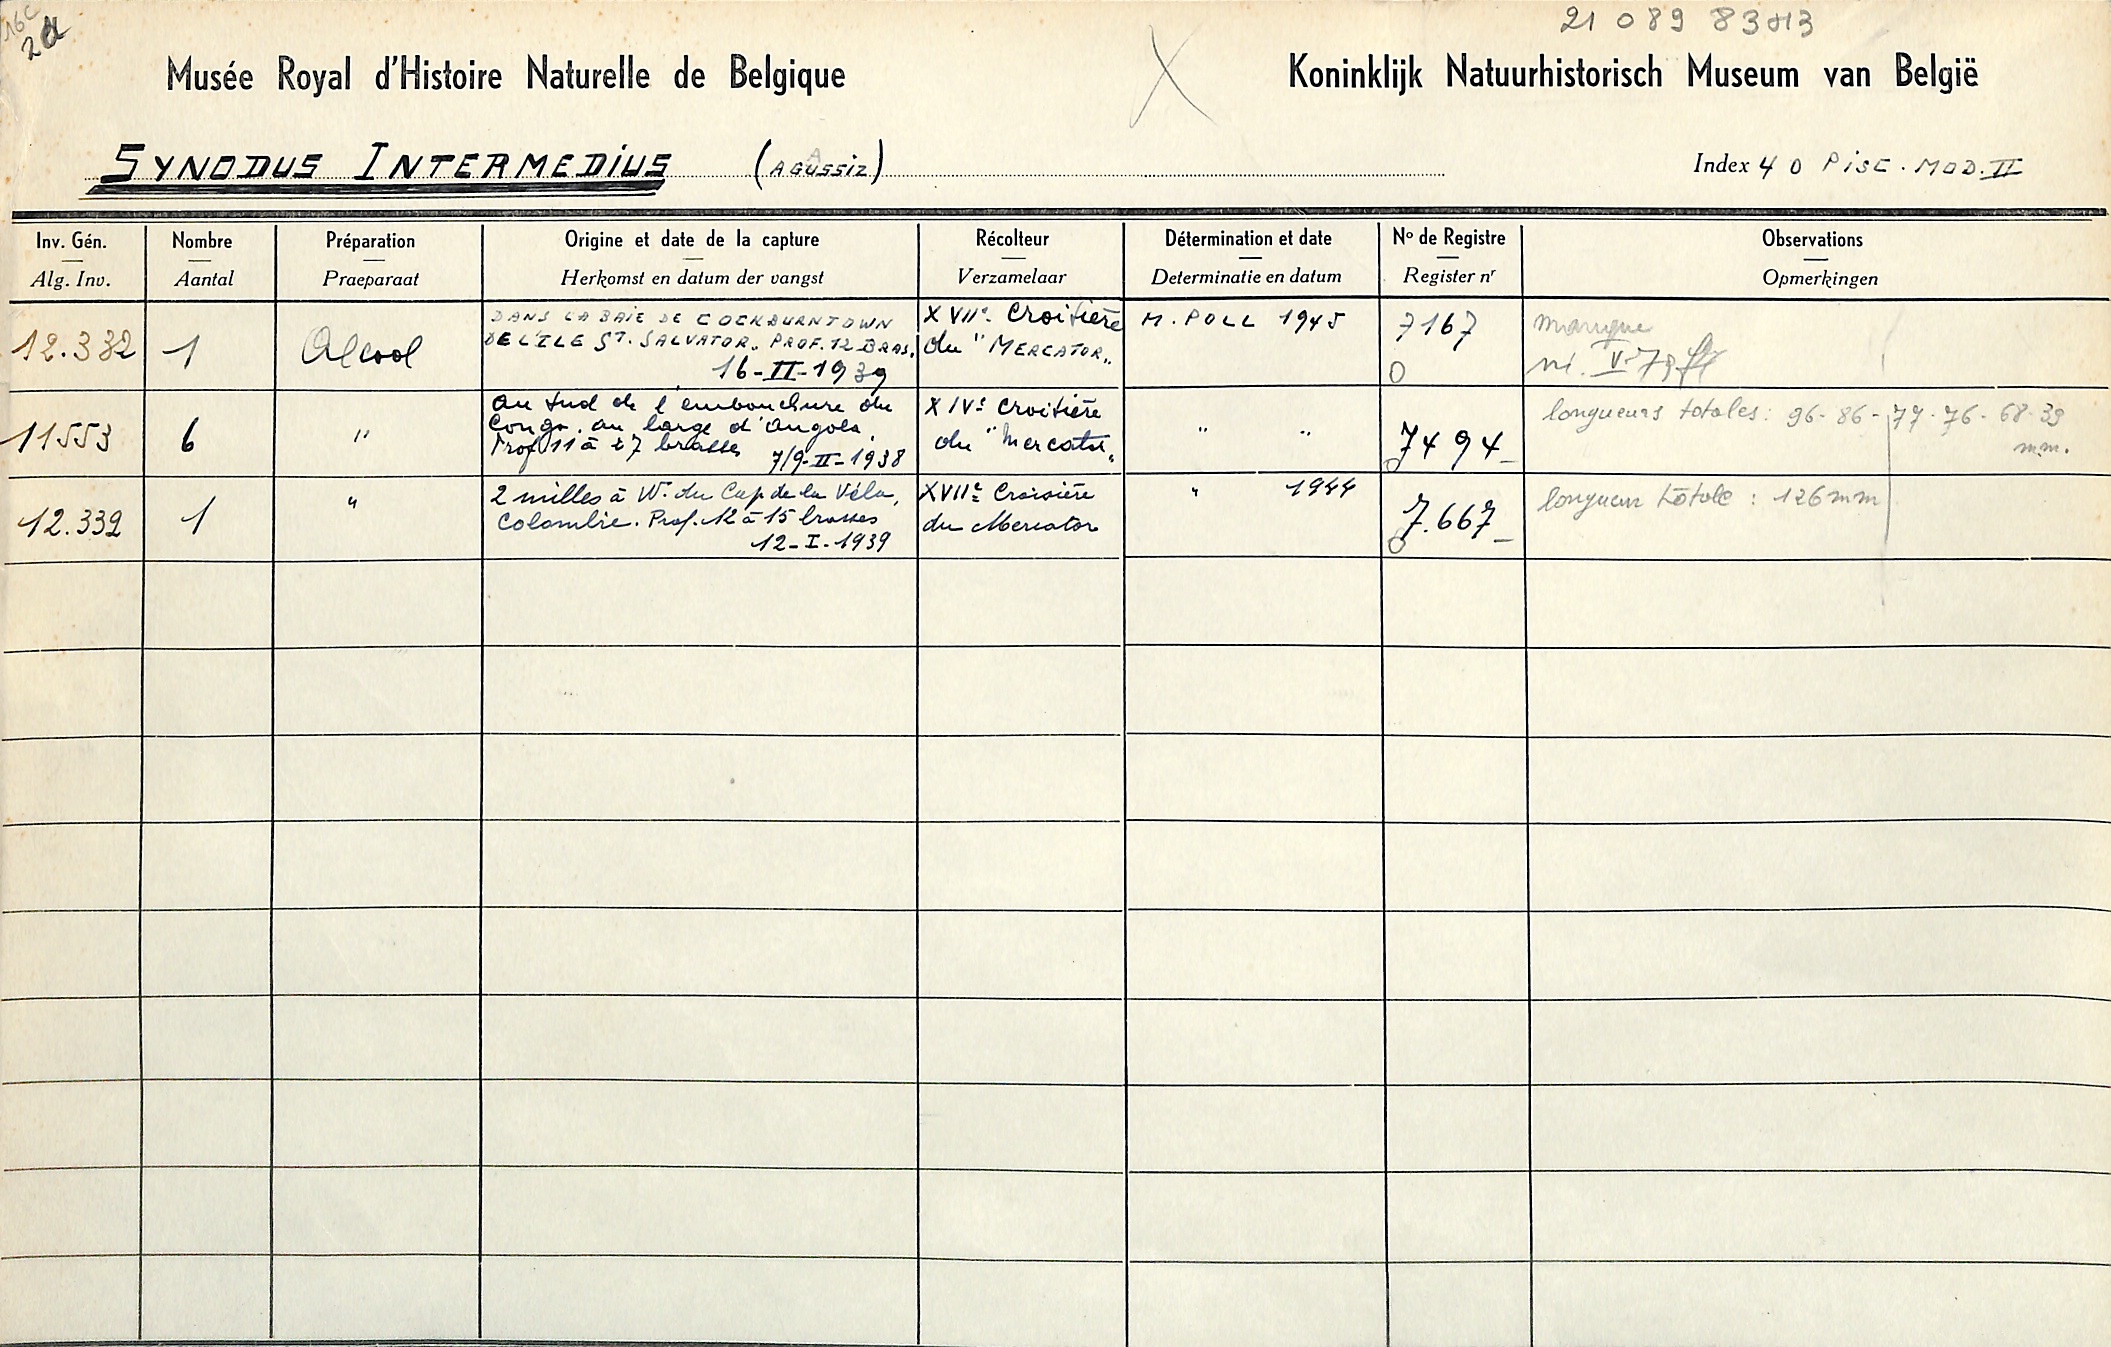 16c
2a
21 089 8313
Musée Royal d'Histoire Naturelle de Belgique
Koninklijk Natuurhistorisch Museum van België
SYNODUS INTERMEDIUS (AGUSSIZ)
A
Index 40 PISC. MOD. II
Inv. Gén.
Alg. Inv.
Nombre
Aantal
Préparation
Praeparaat
Origine et date de la capture
Herkomst en datum der vangst
Récolteur
Verzamelaar
Détermination et date
Determinatie en datum
No de Registre
Register nr
Observations
Opmerkingen
12.332
1
Alcool
DANS LA BAIE DE COCKBURNTOWN
DE L'ILE ST. SALVATOR. PROF. 12 BRAS.
16-II-1939
XVIIe. Croisière
du "MERCATOR"
M. POLL 1945
7167
0
manque
V-73
11553
6
"
au sud de l'embouchure du
Congo. au large d'Angola.
Prof 11 à 27 brasses
7/9-II-1938
XIVe Croisière
du "Mercator"
" "
7494
longueurs totales: 96-86-77-76-68-39
mm.
12.339
1
"
2 milles à W. du Cap de la Véla,
Colombie. Prof. 12 à 15 brasses
12-I-1939
XVIIe Croisière
du Mercator
" 1944
7.667
longueur totale : 126mm